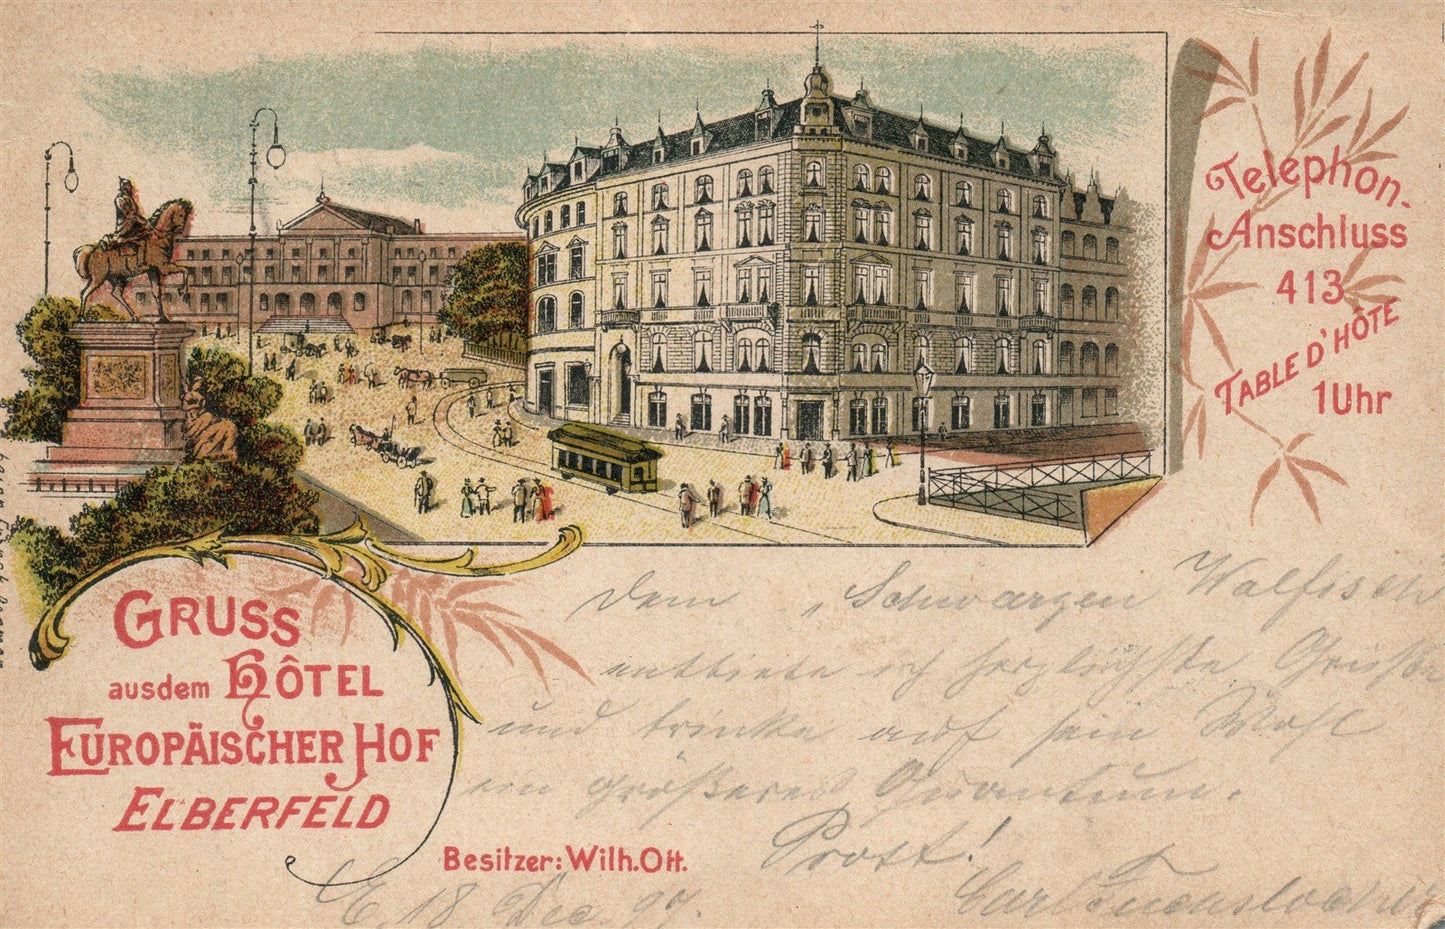 Telephon-
Anschluss
413
TABLE D'HÔTE
1 Uhr
GRUSS
aus dem HÔTEL
EUROPÄISCHER HOF
ELBERFELD
Besitzer: Wilh. Ott.
Dem „Schwarzen Walfisch
entbiete ich herzlichste Grüße
und trinke auf sein Wohl
ein größeres Quantum.
Prost!
E. 18 Dec. 97.
Carl